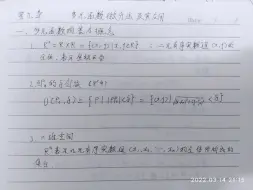 第九章 多元函数微分法及其应用
一、多元函数的基本概念
1. R² = R×R = {(x,y)|x,y∈R} 二元有序实数组(x,y)的
全体，表示坐标平面
2. P₀的δ邻域
U(P₀,δ) = {P| |PP₀|<δ} =
3. n维空间
Rⁿ表示n元有序实数组(x₁,x₂,…,xₙ)的全体构成的
集合
2022.03.14 21:19